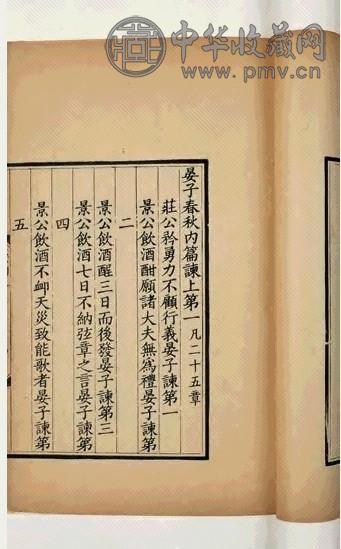 中华收藏网
www.pmv.cn
晏子春秋內篇諫上第一凡二十五章
莊公矜勇力不顧行義晏子諫第一
景公飲酒酣願諸大夫無為禮晏子諫第
二
景公飲酒酲三日而後發晏子諫第三
景公飲酒七日不納弦章之言晏子諫第
四
景公飲酒不卹天災致能歌者晏子諫第
五